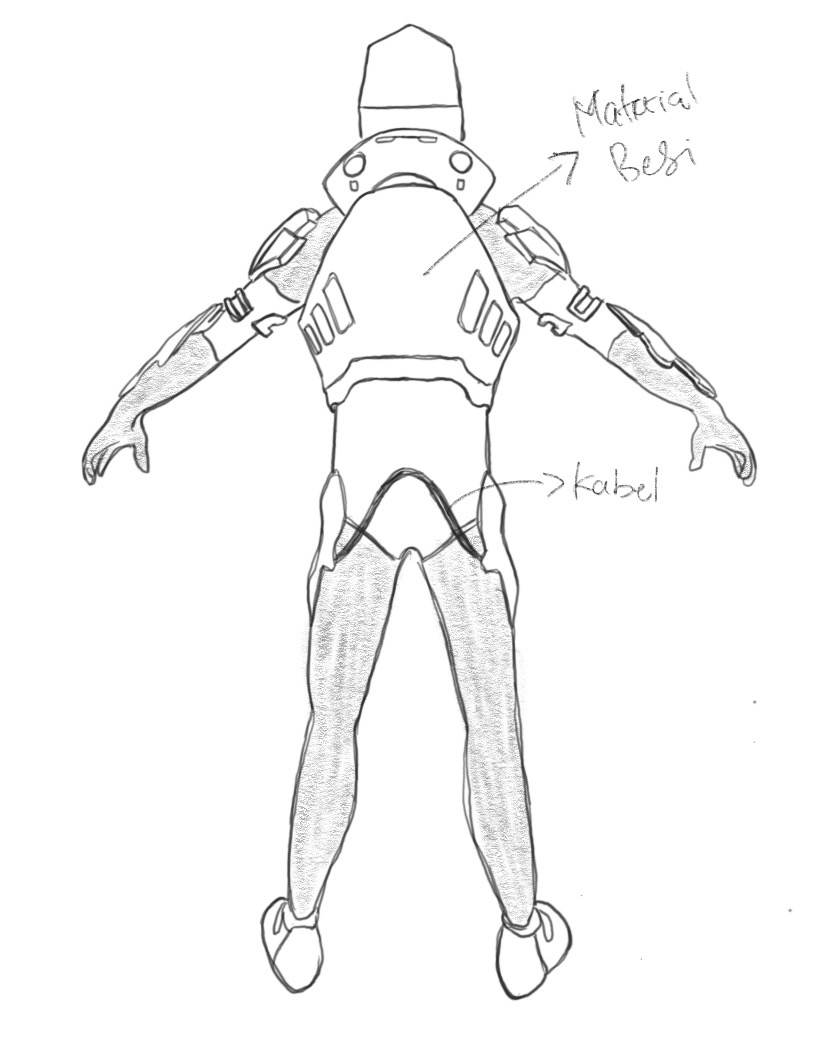 Material
Besi
Kabel